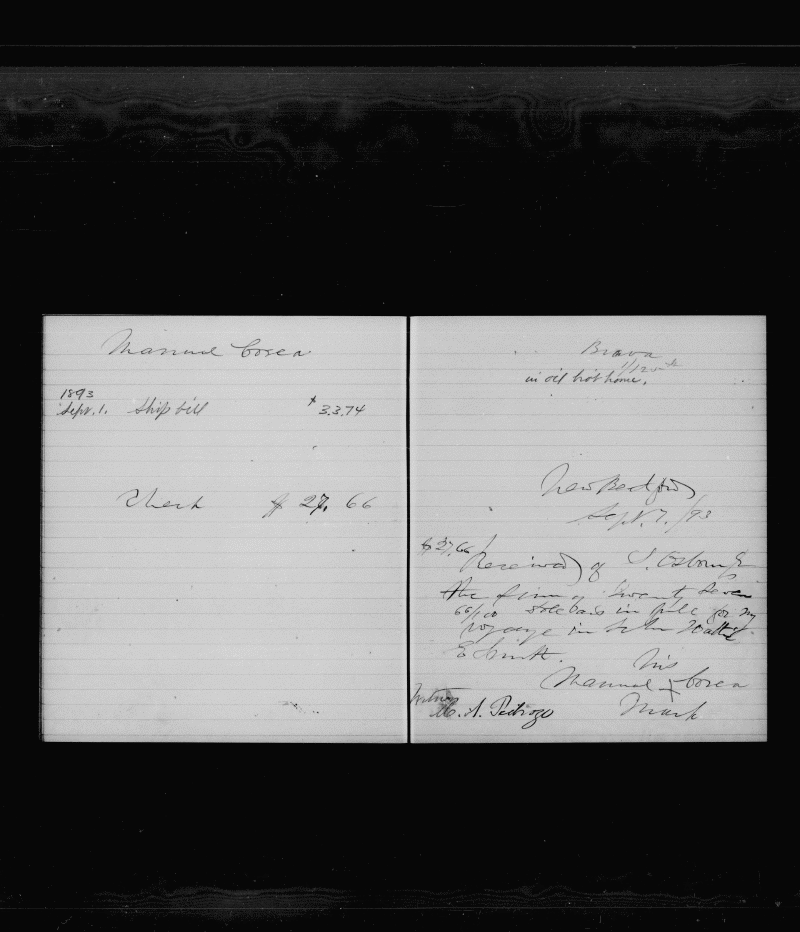 Manuel Correa
1893
Sept. 1. Ship bill $33.74
Check $ 27.66
Brava
1/120
in oil not home.
New Bedford
Sept. 7. /93
$27.66
Received of S. Osborn Jr
the sum of Twenty Seven
66/100 dollars in full for my
voyage in Schr Hattie
E Smith.
his
Manuel X Correa
Mark
Witness
M. A. Pedrozo